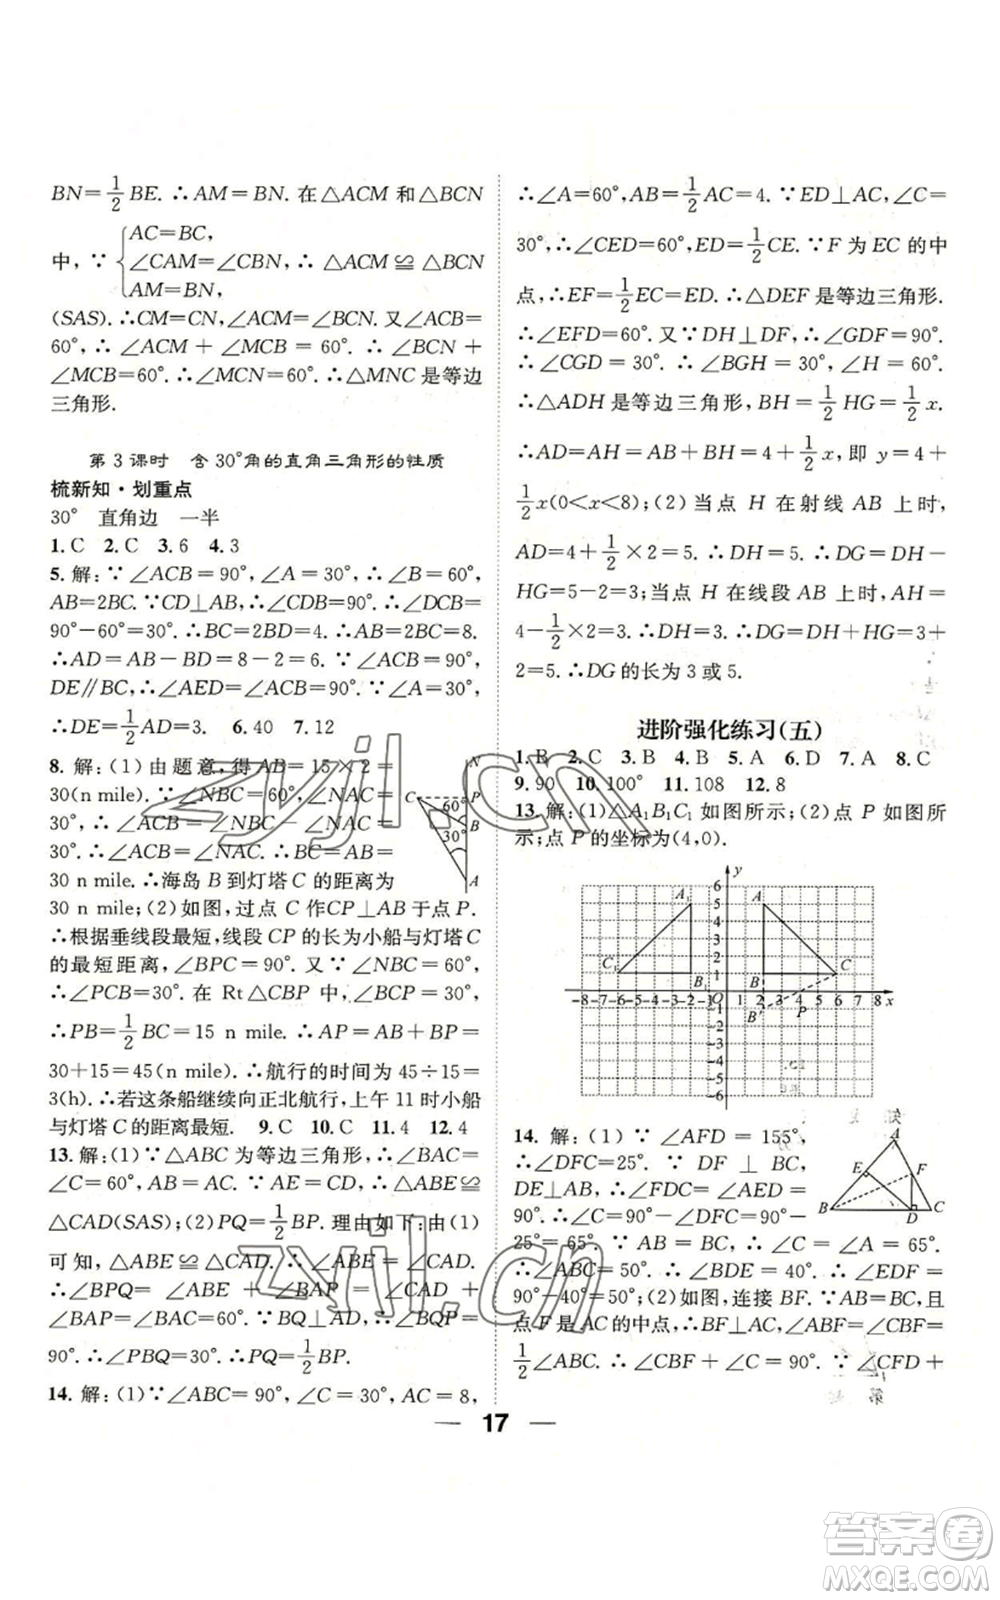 BN=1/2BE. ∴AM=BN. 在△ACM 和△BCN
中，∵{AC=BC,
∠CAM=∠CBN, ∴△ACM≌△BCN
AM=BN,
(SAS). ∴CM=CN,∠ACM=∠BCN. 又∠ACB=
60°, ∴∠ACM+∠MCB=60°. ∴∠BCN+
∠MCB=60°. ∴∠MCN=60°. ∴△MNC 是等边
三角形.
第 3 课时 含 30°角的直角三角形的性质
梳新知·划重点
30° 直角边 一半
1. C 2. C 3. 6 4. 3
5. 解：∵∠ACB=90°,∠A=30°, ∴∠B=60°,
AB=2BC. ∵CD⊥AB, ∴∠CDB=90°. ∴∠DCB=
90°-60°=30°. ∴BC=2BD=4. ∴AB=2BC=8.
∴AD=AB-BD=8-2=6. ∵∠ACB=90°,
DE∥BC, ∴∠AED=∠ACB=90°. ∵∠A=30°,
∴DE=1/2AD=3. 6. 40 7. 12
8. 解：(1)由题意，得AB=15×2=
30(n mile). ∵∠NBC=60°,∠NAC=
30°, ∴∠ACB=∠NBC-∠NAC=
30°. ∴∠ACB=∠NAC. ∴BC=AB=
30 n mile. ∴海岛 B 到灯塔 C 的距离为
30 n mile；(2)如图，过点 C 作CP⊥AB于点 P.
∴根据垂线段最短，线段 CP 的长为小船与灯塔 C
的最短距离，∠BPC=90°. 又∵∠NBC=60°,
∴∠PCB=30°. 在 Rt△CBP 中，∠BCP=30°,
∴PB=1/2BC=15 n mile. ∴AP=AB+BP=
30+15=45(n mile). ∴航行的时间为 45÷15=
3(h). ∴若这条船继续向正北航行，上午 11 时小船
与灯塔 C 的距离最短. 9. C 10. C 11. 4 12. 4
13. 解：(1)∵△ABC 为等边三角形，∴∠BAC=
∠C=60°, AB=AC. ∵AE=CD, ∴△ABE≌
△CAD(SAS)；(2)PQ=1/2BP. 理由如下：由(1)
可知，△ABE≌△CAD. ∴∠ABE=∠CAD.
∴∠BPQ=∠ABE+∠BAP=∠CAD+
∠BAP=∠BAC=60°. ∵BQ⊥AD, ∴∠BQP=
90°. ∴∠PBQ=30°. ∴PQ=1/2BP.
14. 解：(1)∵∠ABC=90°,∠C=30°, AC=8,
C N P 60° B 30° A
∴∠A=60°, AB=1/2AC=4. ∵ED⊥AC,∠C=
30°, ∴∠CED=60°, ED=1/2CE. ∵F 为 EC 的中
点，∴EF=1/2EC=ED. ∴△DEF 是等边三角形.
∴∠EFD=60°. 又∵DH⊥DF, ∴∠GDF=90°.
∴∠CGD=30°. ∴∠BGH=30°,∠H=60°.
∴△ADH 是等边三角形，BH=1/2HG=1/2x.
∴AD=AH=AB+BH=4+1/2x, 即 y=4+
1/2x(0<x<8)；(2)当点 H 在射线 AB 上时，
AD=4+1/2×2=5. ∴DH=5. ∴DG=DH-
HG=5-2=3；当点 H 在线段 AB 上时，AH=
4-1/2×2=3. ∴DH=3. ∴DG=DH+HG=3+
2=5. ∴DG的长为 3 或 5.
进阶强化练习(五)
1. B 2. C 3. B 4. B 5. A 6. D 7. A 8. C
9. 90 10. 100° 11. 108 12. 8
13. 解：(1)△A₁B₁C₁ 如图所示；(2)点 P 如图所
示；点 P 的坐标为(4,0).
y 6 5 4 3 2 1 -1 -2 -3 -4 -5 -6
A₁ A C₁ B₁ B C B′ P
-8-7-6-5-4-3-2-1 O 1 2 3 4 5 6 7 8 x
14. 解：(1)∵∠AFD=155°,
∴∠DFC=25°. ∵DF⊥BC,
DE⊥AB, ∴∠FDC=∠AED=
90°. ∴∠C=90°-∠DFC=90°-
25°=65°. ∵AB=BC, ∴∠C=∠A=65°.
∴∠ABC=50°. ∴∠BDE=40°. ∴∠EDF=
90°-40°=50°；(2)如图，连接 BF. ∵AB=BC,且
点 F 是 AC 的中点，∴BF⊥AC,∠ABF=∠CBF=
1/2∠ABC. ∴∠CBF+∠C=90°. ∵∠CFD+
A E F B D C
17
zyjl.cn
zyjl.cn
答案圈
MXQE.COM